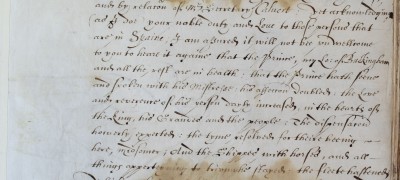 and by relation of Mr Secretary Calvert. Yet acknowledging
as I doe your noble duty and Love to those persons that
are in Spaine, I am assured it will not be unwellcome
to you to heare it againe that the Prince, my Lo: of Buckingham
and all the rest are in health; that the Prince hath seene
and spoken with his Mistresse; his affection doubled; the Love
and reverence of his person dayly increased, in the hearts of
the King, his Grandes and the people; The dispensation
howerly expected; the tyme resolved for theire
here, midsomer; And the Shippes with horses, and all
things appertayning to the fleete hastened